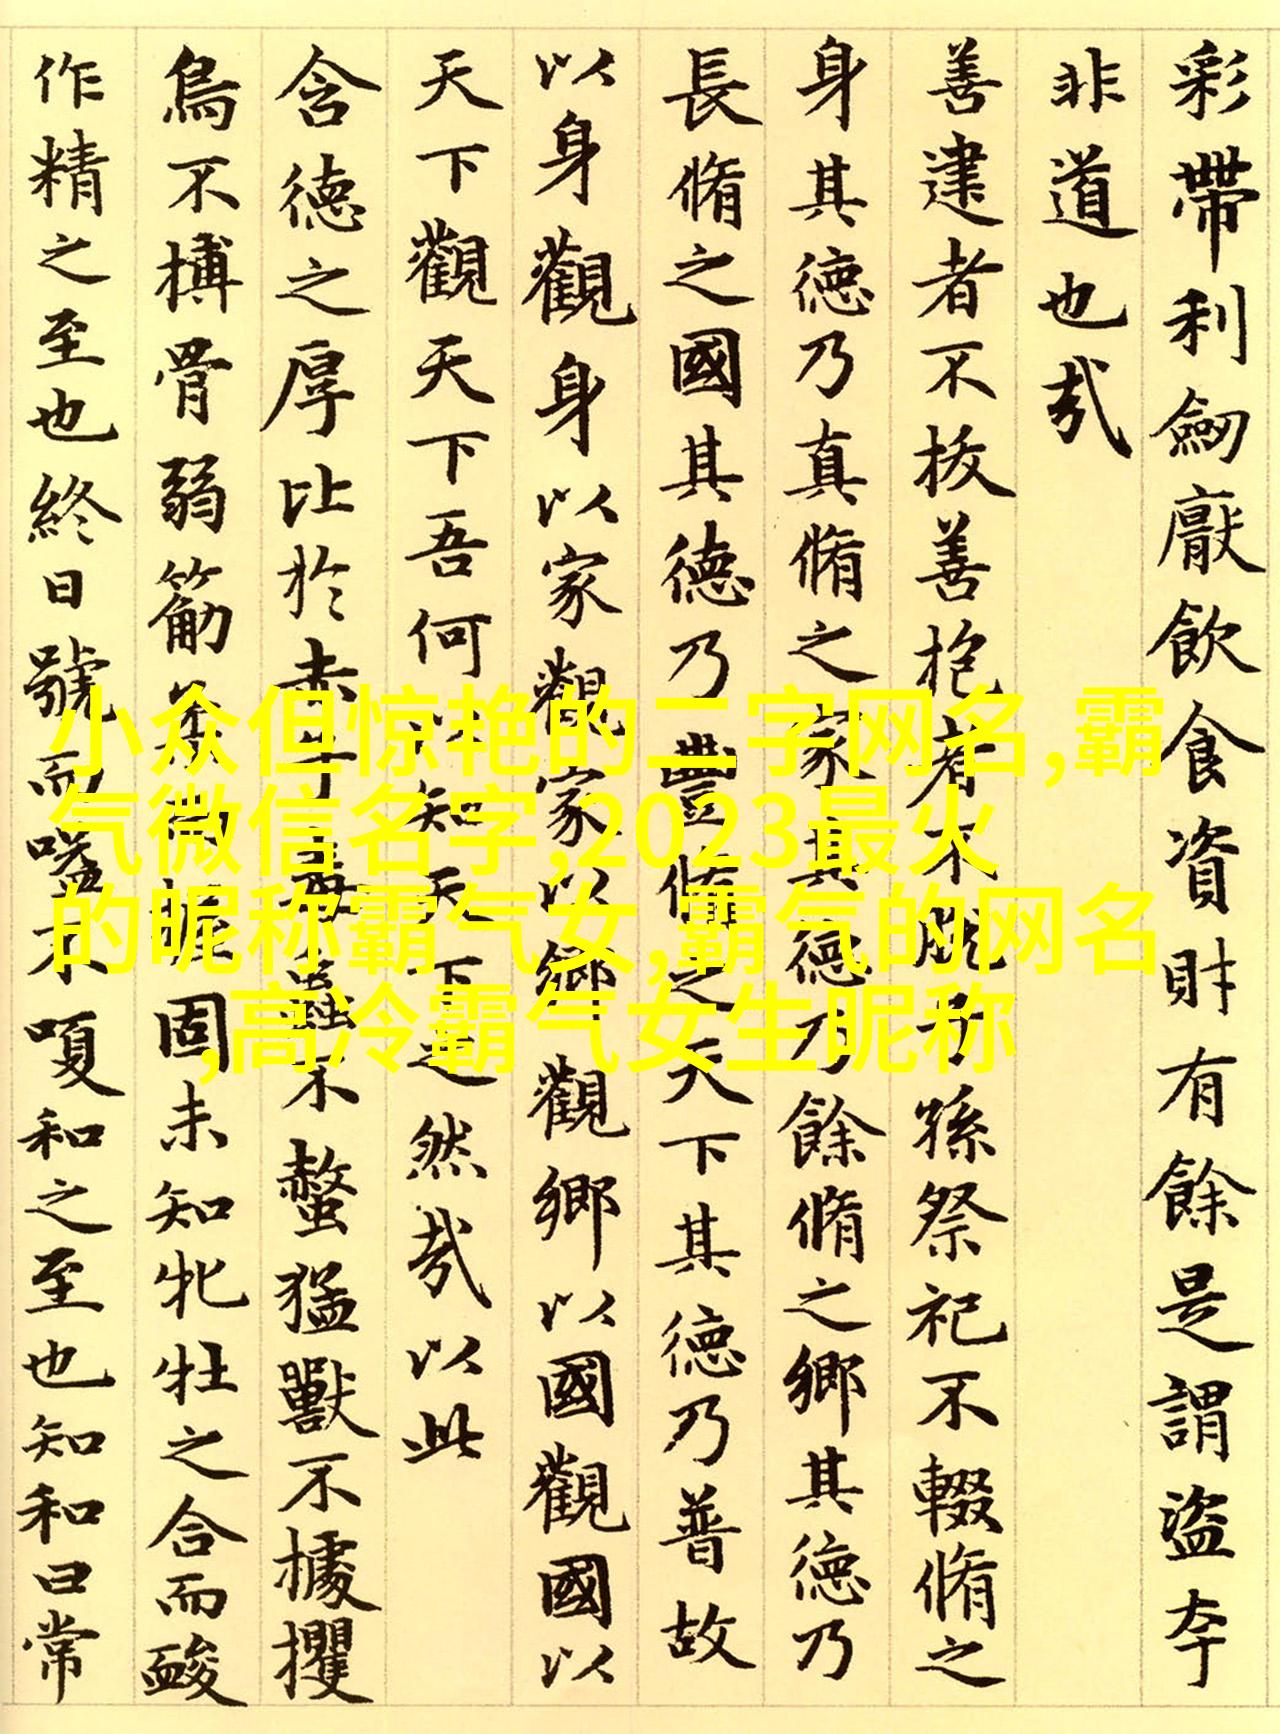 彩帶利劒厭飲食資財有餘是謂盜夸
非道也哉
善建者不拔善抱者不脫子孫祭祀不輟脩之
身其德乃真脩之家其德乃餘脩之鄉其德乃
長脩之國其德乃豐脩之天下其德乃普故
以身觀身以家觀家以鄉觀鄉以國觀國以
天下觀天下吾何以知天下之然哉以此
含德之厚比於赤子毒蟲不螫猛獸不據攫
鳥不搏骨弱筋柔握固未知牝牡之合而酸
作精之至也終日號而嗌不嗄和之至也知和曰常
小众但惊艳的二字网名,霸
气微信名字,2023最火
的昵称霸气女,霸气的网名
,高冷霸气女生昵称